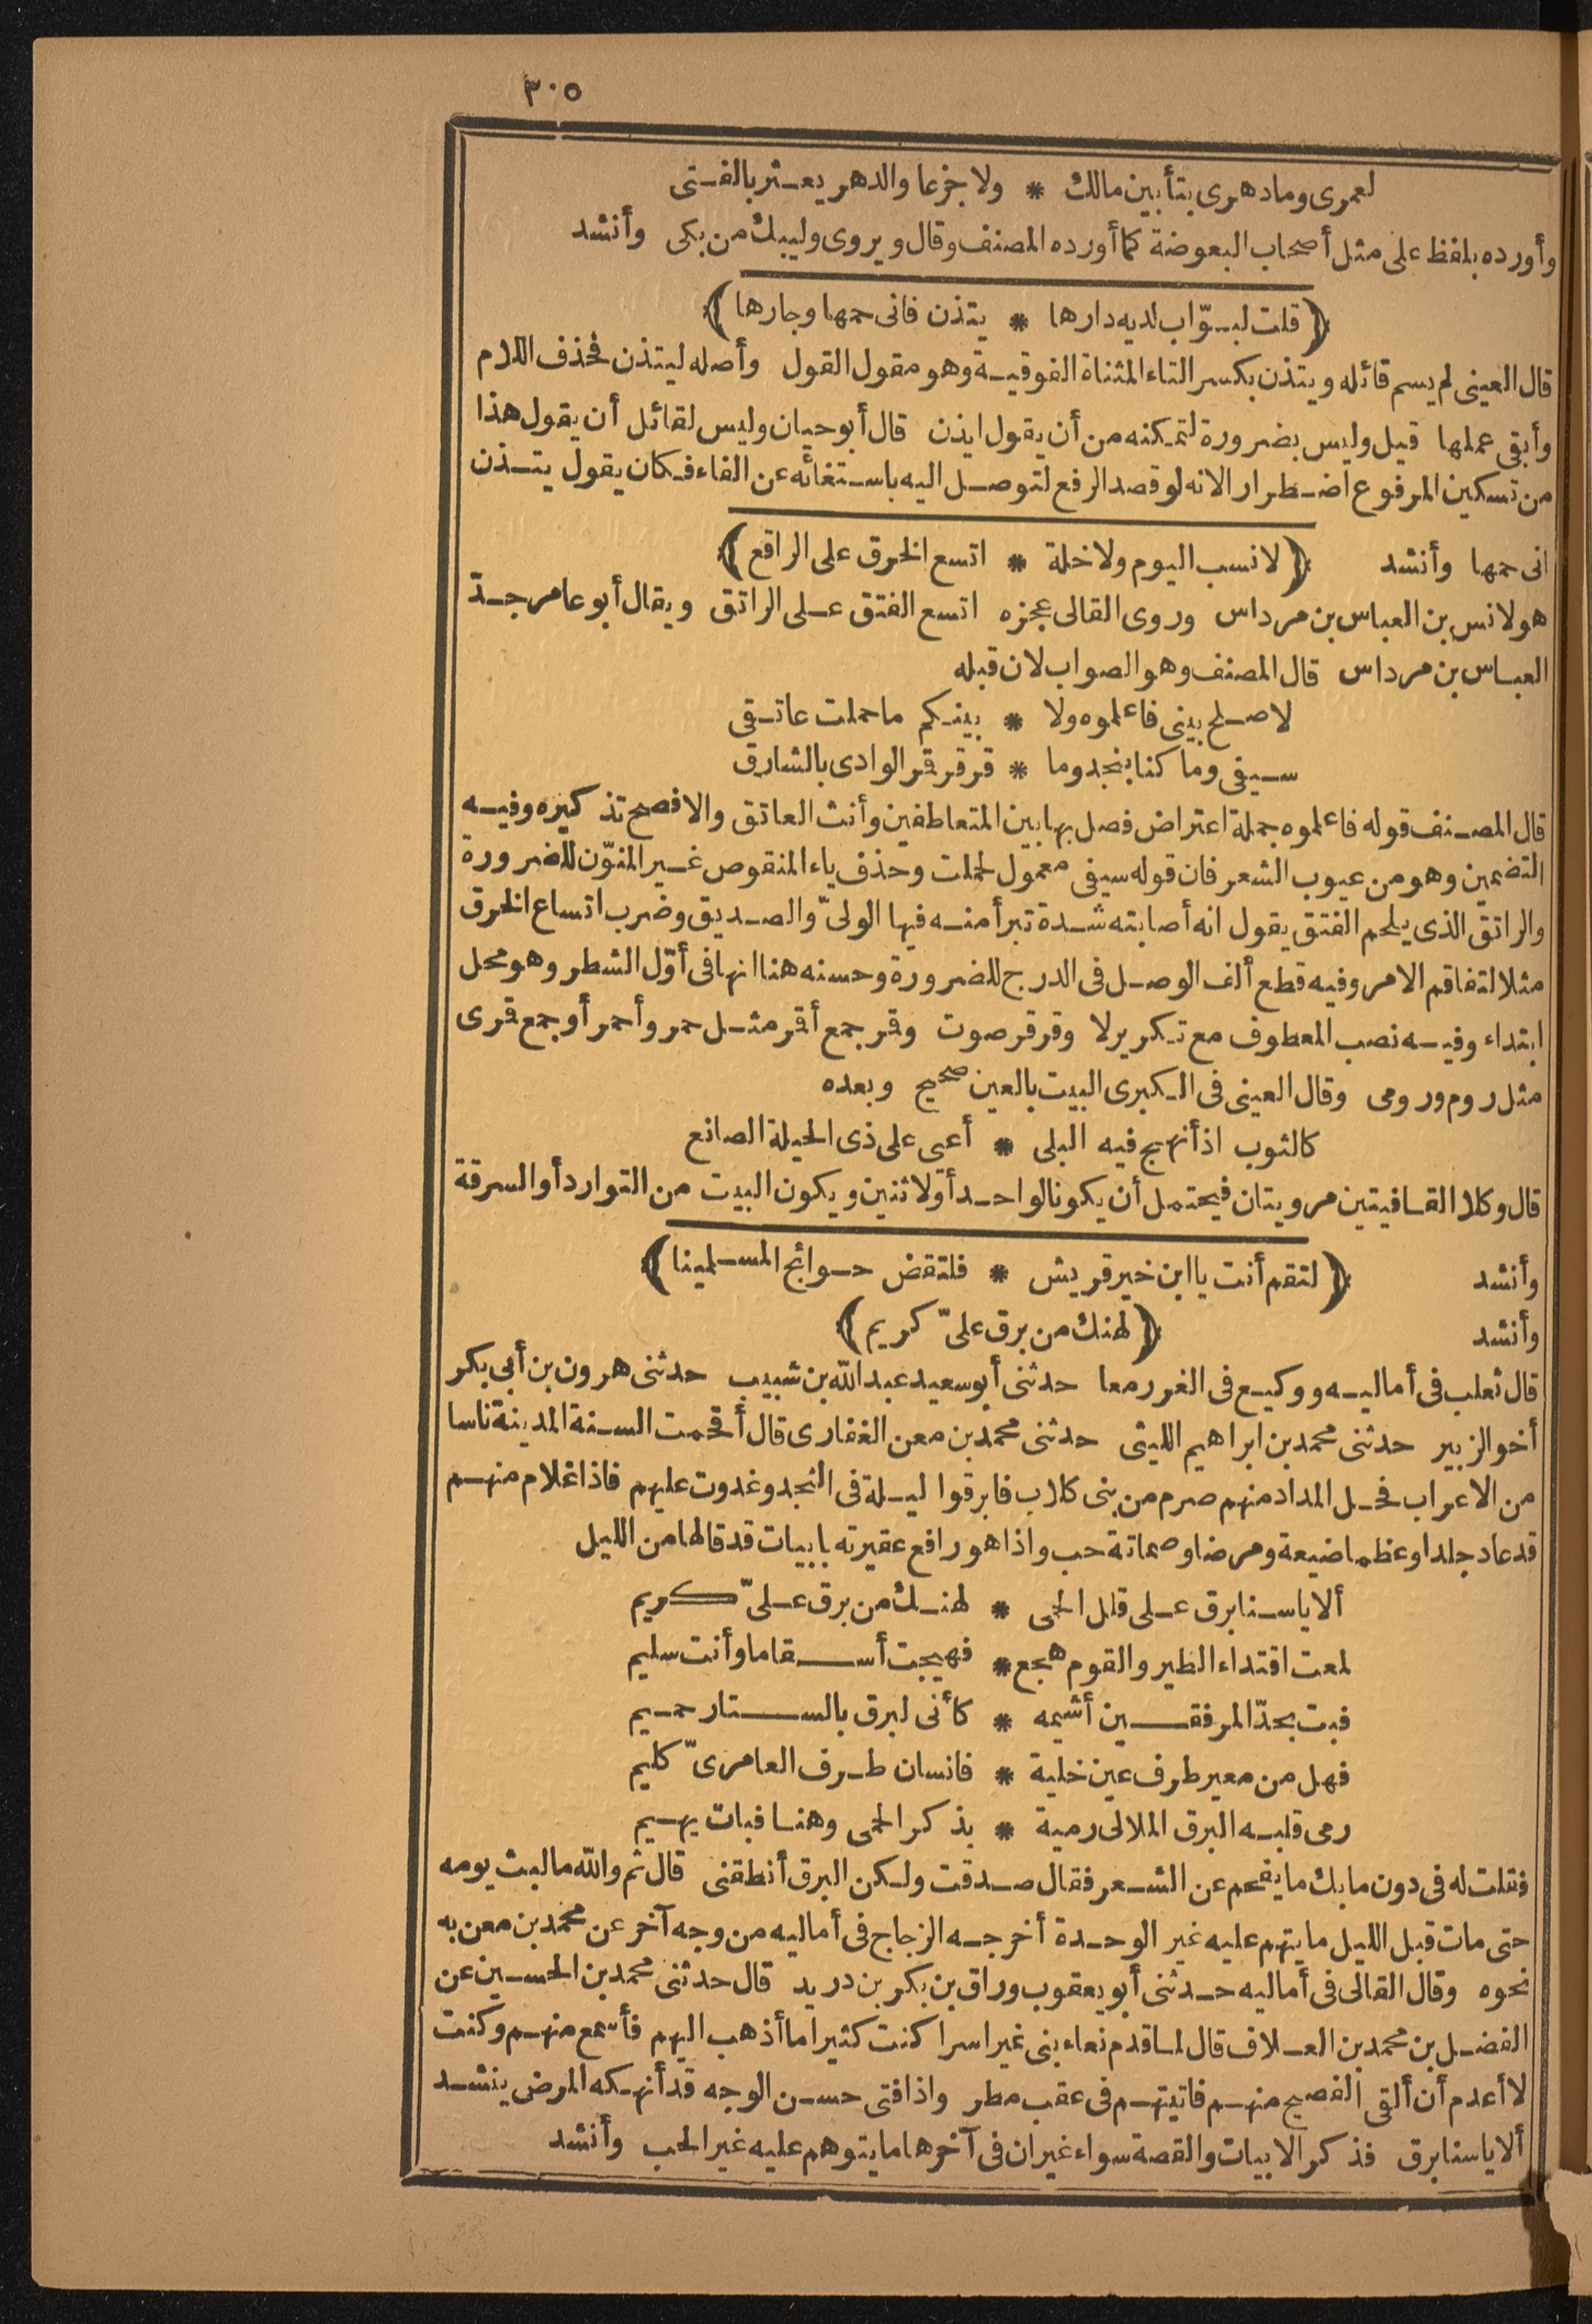 ٣٠٥
لعمرى ومادهرى بتأبين مالك * ولا جزعا والدهر يعثر بالفتى
وأورده بلفظ على مثل أصحاب البعوضة كما أورده المصنف وقال ويروى وليبك من بكى وأنشد
﴿قلت لبوّاب لديه دارها * يتذن فانى حمها وجارها﴾
قال العينى لم يسم قائله ويتذن بكسر التاء المثناة الفوقية وهو مقول القول وأصله ليتذن فحذف اللام
وأبقى عملها قيل وليس بضرورة لتمكنه من أن يقول ايذن قال أبو حيان وليس لقائل أن يقول هذا
من تسكين المرفوع اضطرارا لانه لو قصد الرفع لتوصل اليه باستغنائه عن الفاء فكان يقول يتذن
انى حمها وأنشد ﴿لانسب اليوم ولا خلة * اتسع الخرق على الراقع﴾
هو لانس بن العباس بن مرداس وروى القالى عجزه اتسع الفتق على الراتق ويقال أبو عامر جدّ
العباس بن مرداس قال المصنف وهو الصواب لان قبله
لا صلح بينى فاعلموه ولا * بينكم ما حملت عاتقى
سيفى وما كنا بنجد وما * قرقر قر الوادى بالشارق
قال المصنف قوله فاعلموه جملة اعتراض فصل بها بين المتعاطفين وأنث العاتق والافصح تذكيره وفيه
التضمين وهو من عيوب الشعر فان قوله سيفى معمول لحملت وحذف ياء المنقوص غير المنوّن للضرورة
والراتق الذى يلحم الفتق يقول انه أصابته شدة تبرأ منه فيها الولىّ والصديق وضرب اتساع الخرق
مثلا لتفاقم الامر وفيه قطع ألف الوصل فى الدرج للضرورة وحسنه هنا انها فى أوّل الشطر وهو محل
ابتداء وفيه نصب المعطوف مع تكرير لا وقرقر صوت وقر جمع أقر مثل حمر وأحمر أو جمع قرى
مثل روم ورومى وقال العينى فى الكبرى البيت بالعين صحيح وبعده
كالثوب اذ أنهج فيه البلى * أعيى على ذى الحيلة الصانع
قال وكلا القافيتين مرويتان فيحتمل أن يكونا لواحد أو لاثنين ويكون البيت من التوارد أو السرقة
وأنشد ﴿لتقم أنت يا ابن خير قريش * فلتقض حوائج المسلمينا﴾
وأنشد ﴿لهنك من برق علىّ كريم﴾
قال ثعلب فى أماليه ووكيع فى الغرر معا حدثنى أبو سعيد عبد الله بن شبيب حدثنى هرون بن أبى بكر
أخو الزبير حدثنى محمد بن ابراهيم الليثى حدثنى محمد بن معن الغفارى قال أقحمت السنة المدينة ناسا
من الاعراب فحل المداد منهم صرم من بنى كلاب فابرقوا ليلة فى النجد وغدوت عليهم فاذا غلام منهم
قد عاد جلدا وعظما ضيعة ومرضا وصماتة حب واذا هو رافع عقيرته بابيات قد قالها من الليل
ألا يا سنا برق على قلل الحمى * لهنك من برق علىّ كريم
لمعت اقتداء الطير والقوم هجع * فهيجت أسقاما وأنت سليم
فبت بحدّ المرفقين أشيمه * كأنى لبرق بالستار حميم
فهل من معير طرف عين خلية * فانسان طرف العامرىّ كليم
رمى قلبه البرق الملالى رمية * بذكر الحمى وهنا فبات يهيم
فقلت له فى دون ما بك ما يفحم عن الشعر فقال صدقت ولكن البرق أنطقنى قال ثم والله ما لبث يومه
حتى مات قبل الليل ما يتهم عليه غير الوحدة أخرجه الزجاج فى أماليه من وجه آخر عن محمد بن معن به
نحوه وقال القالى فى أماليه حدثنى أبو يعقوب وراق بن بكر بن دريد قال حدثنى محمد بن الحسين عن
الفضل بن محمد بن العلاف قال لما قدم نعاء بنى غير اسرا كنت كثيرا ما أذهب اليهم فأسمع منهم وكنت
لا أعدم أن ألقى الفصيح منهم فاتيتهم فى عقب مطر واذا فتى حسن الوجه قد أنهكه المرض ينشد
ألا يا سنا برق فذكر الابيات والقصة سواء غير ان فى آخرها ما يتوهم عليه غير الحب وأنشد